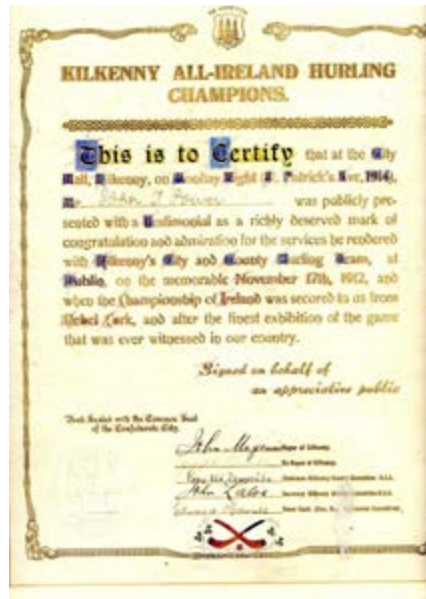 KILKENNY ALL-IRELAND HURLING
CHAMPIONS.
This is to Certify that at the City
Hall, Kilkenny, on Monday Night (St. Patrick's Eve, 1914),
Mr John T Power was publicly pre-
sented with a Testimonial as a richly deserved mark of
congratulation and admiration for the services he rendered
with Kilkenny's City and County Hurling Team, at
Dublin, on the memorable November 17th, 1912, and
when the Championship of Ireland was secured to us from
Rebel Cork, and after the finest exhibition of the game
that was ever witnessed in our country.
Signed on behalf of
an appreciative public
Then Sealed with the Common Seal
of the Confederate City.
John Mayor of Kilkenny.
Ex-Mayor of Kilkenny.
Chairman Kilkenny County Committee G.A.A.
John Secretary Kilkenny
Edward